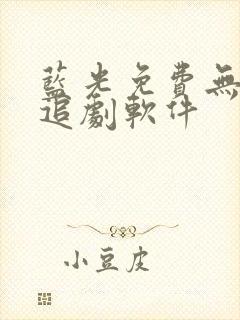 藍光免費無
追劇軟件
小豆皮